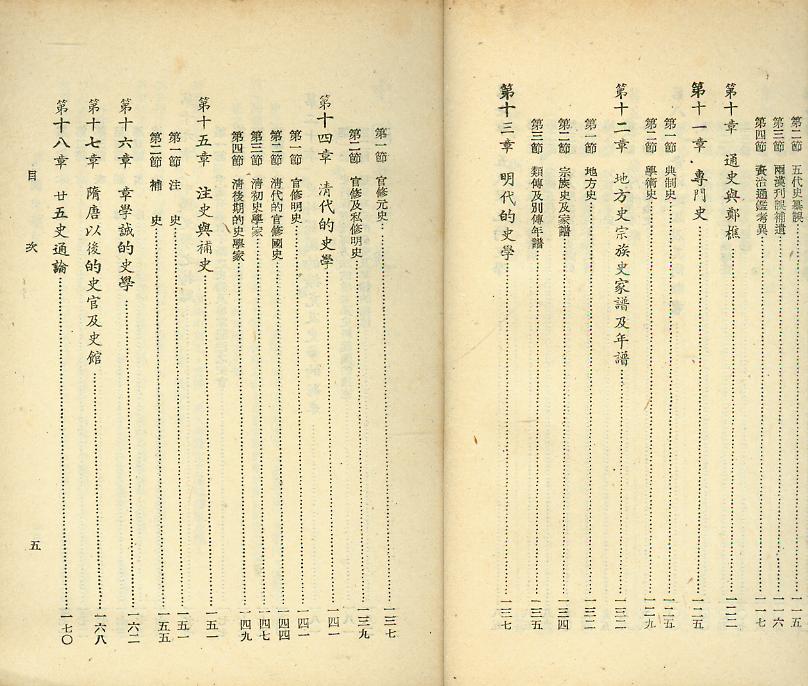 第二節 五代史纂誤……一一五
第三節 兩漢刊誤補遺……一一六
第四節 資治通鑑考異……一一七
第十章 通史與鄭樵……一二二
第十一章 專門史……一二五
第一節 典制史……一二五
第二節 學術史……一二九
第十二章 地方史宗族史家譜及年譜……一三二
第一節 地方史……一三二
第二節 宗族史及家譜……一三四
第三節 類傳及別傳年譜……一三五
第十三章 明代的史學……一三七
第一節 官修元史……一三七
第二節 官修及私修明史……一三九
第十四章 清代的史學……一四一
第一節 官修明史……一四一
第二節 清代的官修國史……一四四
第三節 清初史學家……一四七
第四節 清後期的史學家……一四九
第十五章 注史與補史……一五一
第一節 注史……一五一
第二節 補史……一五五
第十六章 章學誠的史學……一六二
第十七章 隋唐以後的史官及史館……一六八
第十八章 廿五史通論……一七〇
目次 五